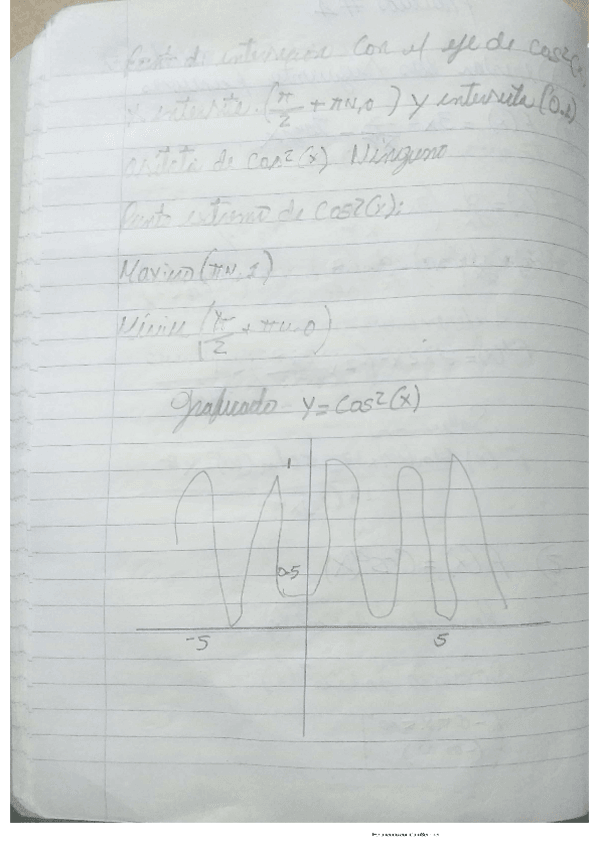 Punto de interseccion con el eje de cos²(x
x intersecta (π/2 + πN, 0) y intersecta (0,1)
de cos²(x) Ninguno
Punto extremo de cos²(x):
Maximo (πN, 1)
(π/2 + πN, 0)
Graficado y = cos²(x)
1
0.5
-5 5